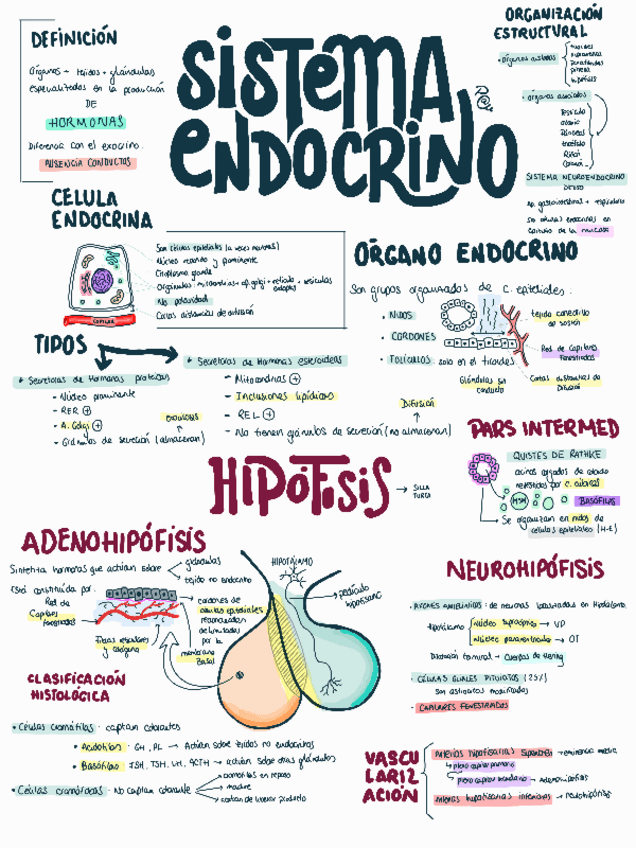 DEFINICIÓN
Órganos + tejidos + glándulas
especializados en la producción
DE
HORMONAS
Diferencia con el exocrino.
AUSENCIA CONDUCTOS
SISTEMA
ENDOCRINO
ORGANIZACIÓN
ESTRUCTURAL
• órganos aislados
tiroides
suprarrenal
Paratiroides
pineal
hipófisis
• órganos asociados
Testículo
ovario
Páncreas
Riñón
SISTEMA NEUROENDOCRINO
DIFUSO
Ap. gastrointestinal + respiratorio
Son células endocrinas en
epitelio de la mucosa
CÉLULA
ENDOCRINA
Son células epiteliales (a veces neuronas)
Núcleo redondo y prominente
Citoplasma grande
Orgánulos: mitocondrias + ap. golgi + retículo + vesículas
No polaridad
Cortas distancias de difusión
CAPILAR
ÓRGANO ENDOCRINO
Son grupos organizados de c. epiteliales.
• NIDOS
• CORDONES
• FOLÍCULOS: solo en el tiroides
tejido conectivo
de sostén
Red de Capilares
Fenestrados
Glándulas sin
conducto
Cortas distancias de
Difusión
TIPOS
* Secretoras de Hormonas proteicas
- Núcleo prominente
- RER +
- A. Golgi +
- Gránulos de secreción (almacenan)
EXOCITOSIS
* Secretoras de Hormonas esteroideas
- Mitocondrias +
- Inclusiones lipídicas
- REL +
- No tienen gránulos de secreción (no almacenan)
DIFUSIÓN
HIPÓFISIS
→ SILLA
TURCA
PARS INTERMED
QUISTES DE RATHKE
revestidos por c. cúbicas
MSH
BASÓFILAS
Se organizan en nidos de
células epiteliales (H-E)
ADENOHIPÓFISIS
Sintetiza hormonas que actúan sobre
glándulas
tejido no endocrino
Está constituida por:
Red de
Capilares
fenestrados
Fibras reticulares
y colágeno
cordones de
células epiteliales
delimitadas
por la
membrana
Basal
HIPOTÁLAMO
pedículo
hipofisario
NEUROHIPÓFISIS
• AXONES AMIELÍNICOS: de neuronas localizadas en hipotálamo.
hipotálamo
Núcleo supraóptico → VP
Núcleo paraventricular → OT
Dilatación terminal → Cuerpos de Herring
• CÉLULAS GLIALES PITUICITOS (25%)
son astrocitos modificados
• CAPILARES FENESTRADOS
CLASIFICACIÓN
HISTOLÓGICA
• Células cromófilas: captan colorantes
• Acidófilas: GH, PL → Actúan sobre tejidos no endocrinos
• Basófilas: FSH, TSH, LH, ACTH → actúan sobre otras glándulas
• Células cromófobas: No captan colorante
cromófilas en reposo
madre
acaban de liberar producto
VASCU
LARIZ
ACIÓN
Arterias hipofisarias superiores → eminencia media
plexo capilar primario
plexo capilar secundario → adenohipófisis
Arterias hipofisarias inferiores → neurohipófisis